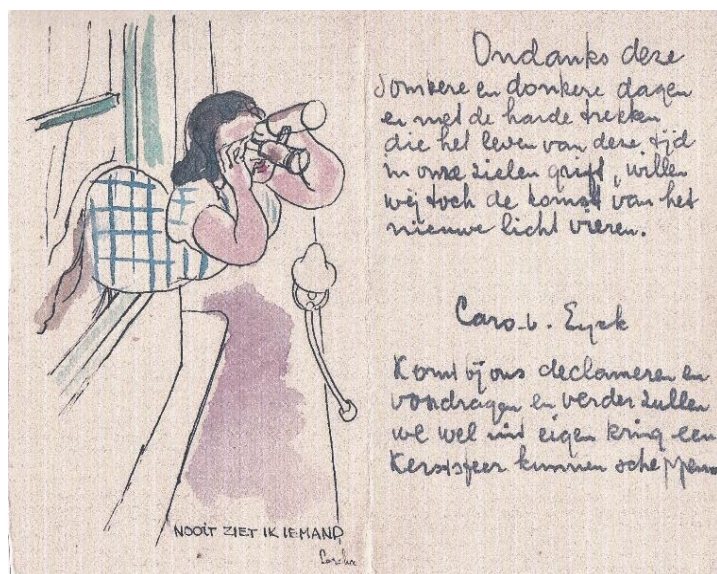 NOOIT ZIET IK IEMAND
Ondanks deze
sombere en donkere dagen
en met de harde trekken
die het leven van deze tijd
in onze zielen grift, willen
wij toch de komst van het
nieuwe licht vieren.
Caro v. Eyck
Komt bij ons declameren en
voordragen en verder zullen
we wel uit eigen kring een
Kerstsfeer kunnen scheppen